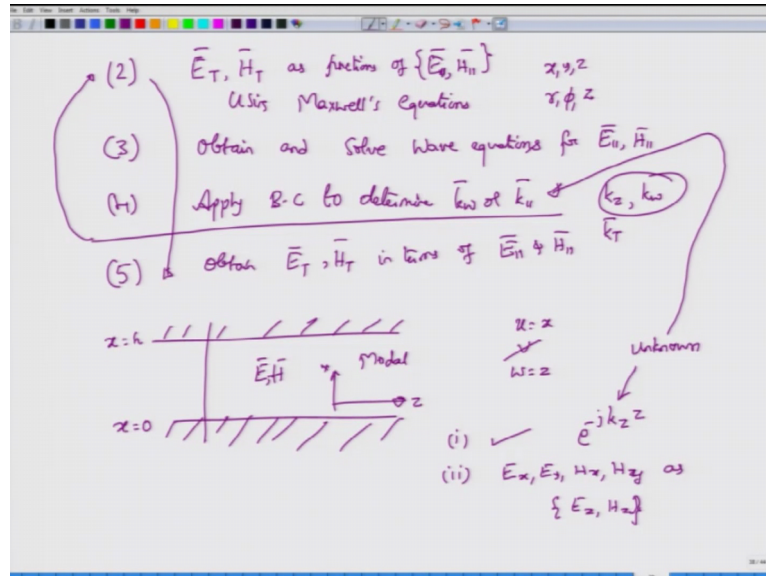 Edit View Insert Actions Tools Help
(2) E̅_T, H̅_T as functions of {E̅_∥, H̅_∥} x,y,z
Using Maxwell's equations r,ϕ,z
(3) Obtain and Solve Wave equations for E̅_∥, H̅_∥
(4) Apply B-C to determine k̅_w or k̅_∥ k_z, k_w
k̅_T
(5) Obtain E̅_T, H̅_T in terms of E̅_∥ & H̅_∥
x=h u=x
E̅,H̅ x Modal v unknown
z w=z
x=0 e^{-jk_z z}
(i) ✓
(ii) E_x, E_y, H_x, H_y as
{E_z, H_z}